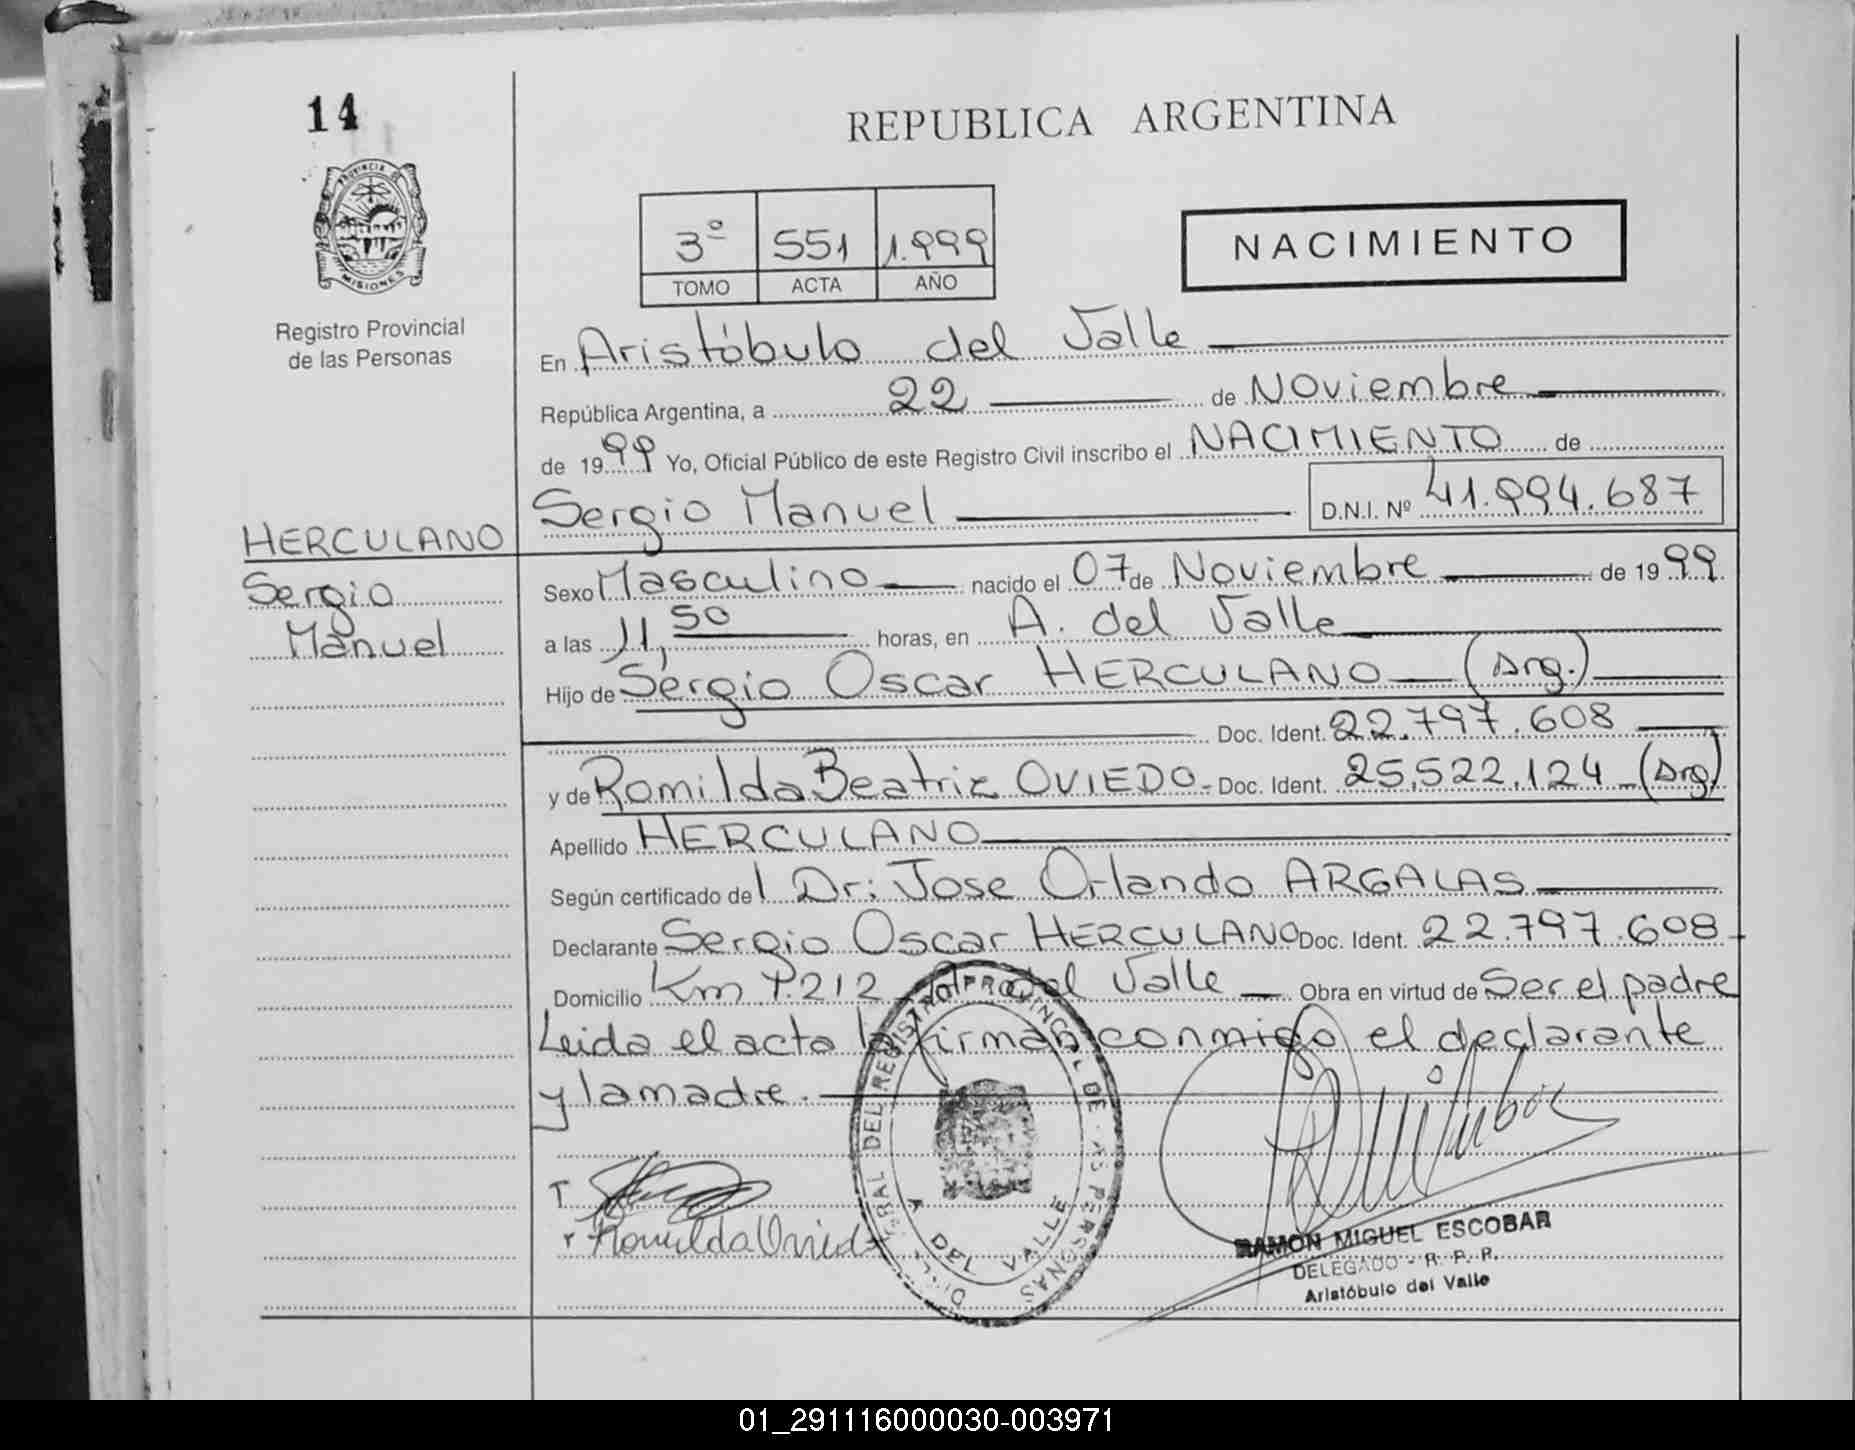 14
REPUBLICA ARGENTINA
PROVINCIA DE
MISIONES
Registro Provincial
de las Personas
3º 551 1.999
TOMO ACTA AÑO
NACIMIENTO
En Aristóbulo del Valle
República Argentina, a 22 de Noviembre
de 1999 Yo, Oficial Público de este Registro Civil inscribo el NACIMIENTO de
Sergio Manuel D.N.I. Nº 41.994.687
HERCULANO
Sergio
Manuel
Sexo Masculino nacido el 07 de Noviembre de 1999
a las 11,50 horas, en A. del Valle
Hijo de Sergio Oscar HERCULANO (Arg.)
Doc. Ident. 22.797.608
y de Romilda Beatriz OVIEDO- Doc. Ident. 25.522.124 (Arg)
Apellido HERCULANO
Según certificado del Dr: Jose Orlando ARGALAS
Declarante Sergio Oscar HERCULANO Doc. Ident. 22.797.608
Domicilio Km 1.212 A. del Valle Obra en virtud de Ser el padre
Leida el acta la firman conmigo el declarante
y la madre.
Romilda Oviedo
DEL REGISTRO PROVINCIAL DE LAS PERSONAS
A DEL VALLE
RAMON MIGUEL ESCOBAR
DELEGADO - R. P. P.
Aristóbulo del Valle
01_291116000030-003971